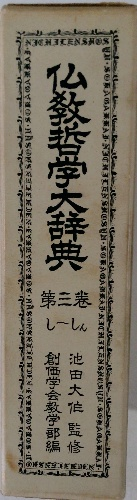 仏教哲学大辞典
第三巻
し―しん
池田大作監修
創価学会教学部編